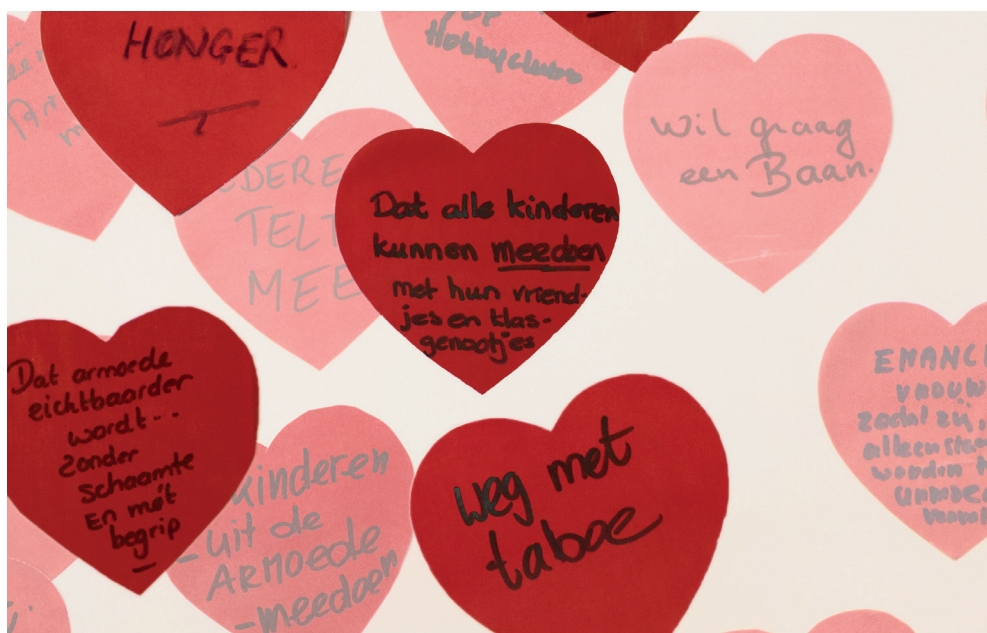 HONGER
Hobbyclubs
Wil graag
een Baan.
TELT
MEE
Dat alle kinderen
kunnen meedoen
met hun vriend-
jes en klas-
genootjes
Dat armoede
zichtbaarder
wordt...
zonder
schaamte
En mét
begrip
kinderen
- uit de
ARMOEDE
- meedoen
weg met
taboe
EMANCI
VROUW
zodat zij,
alleen
worden